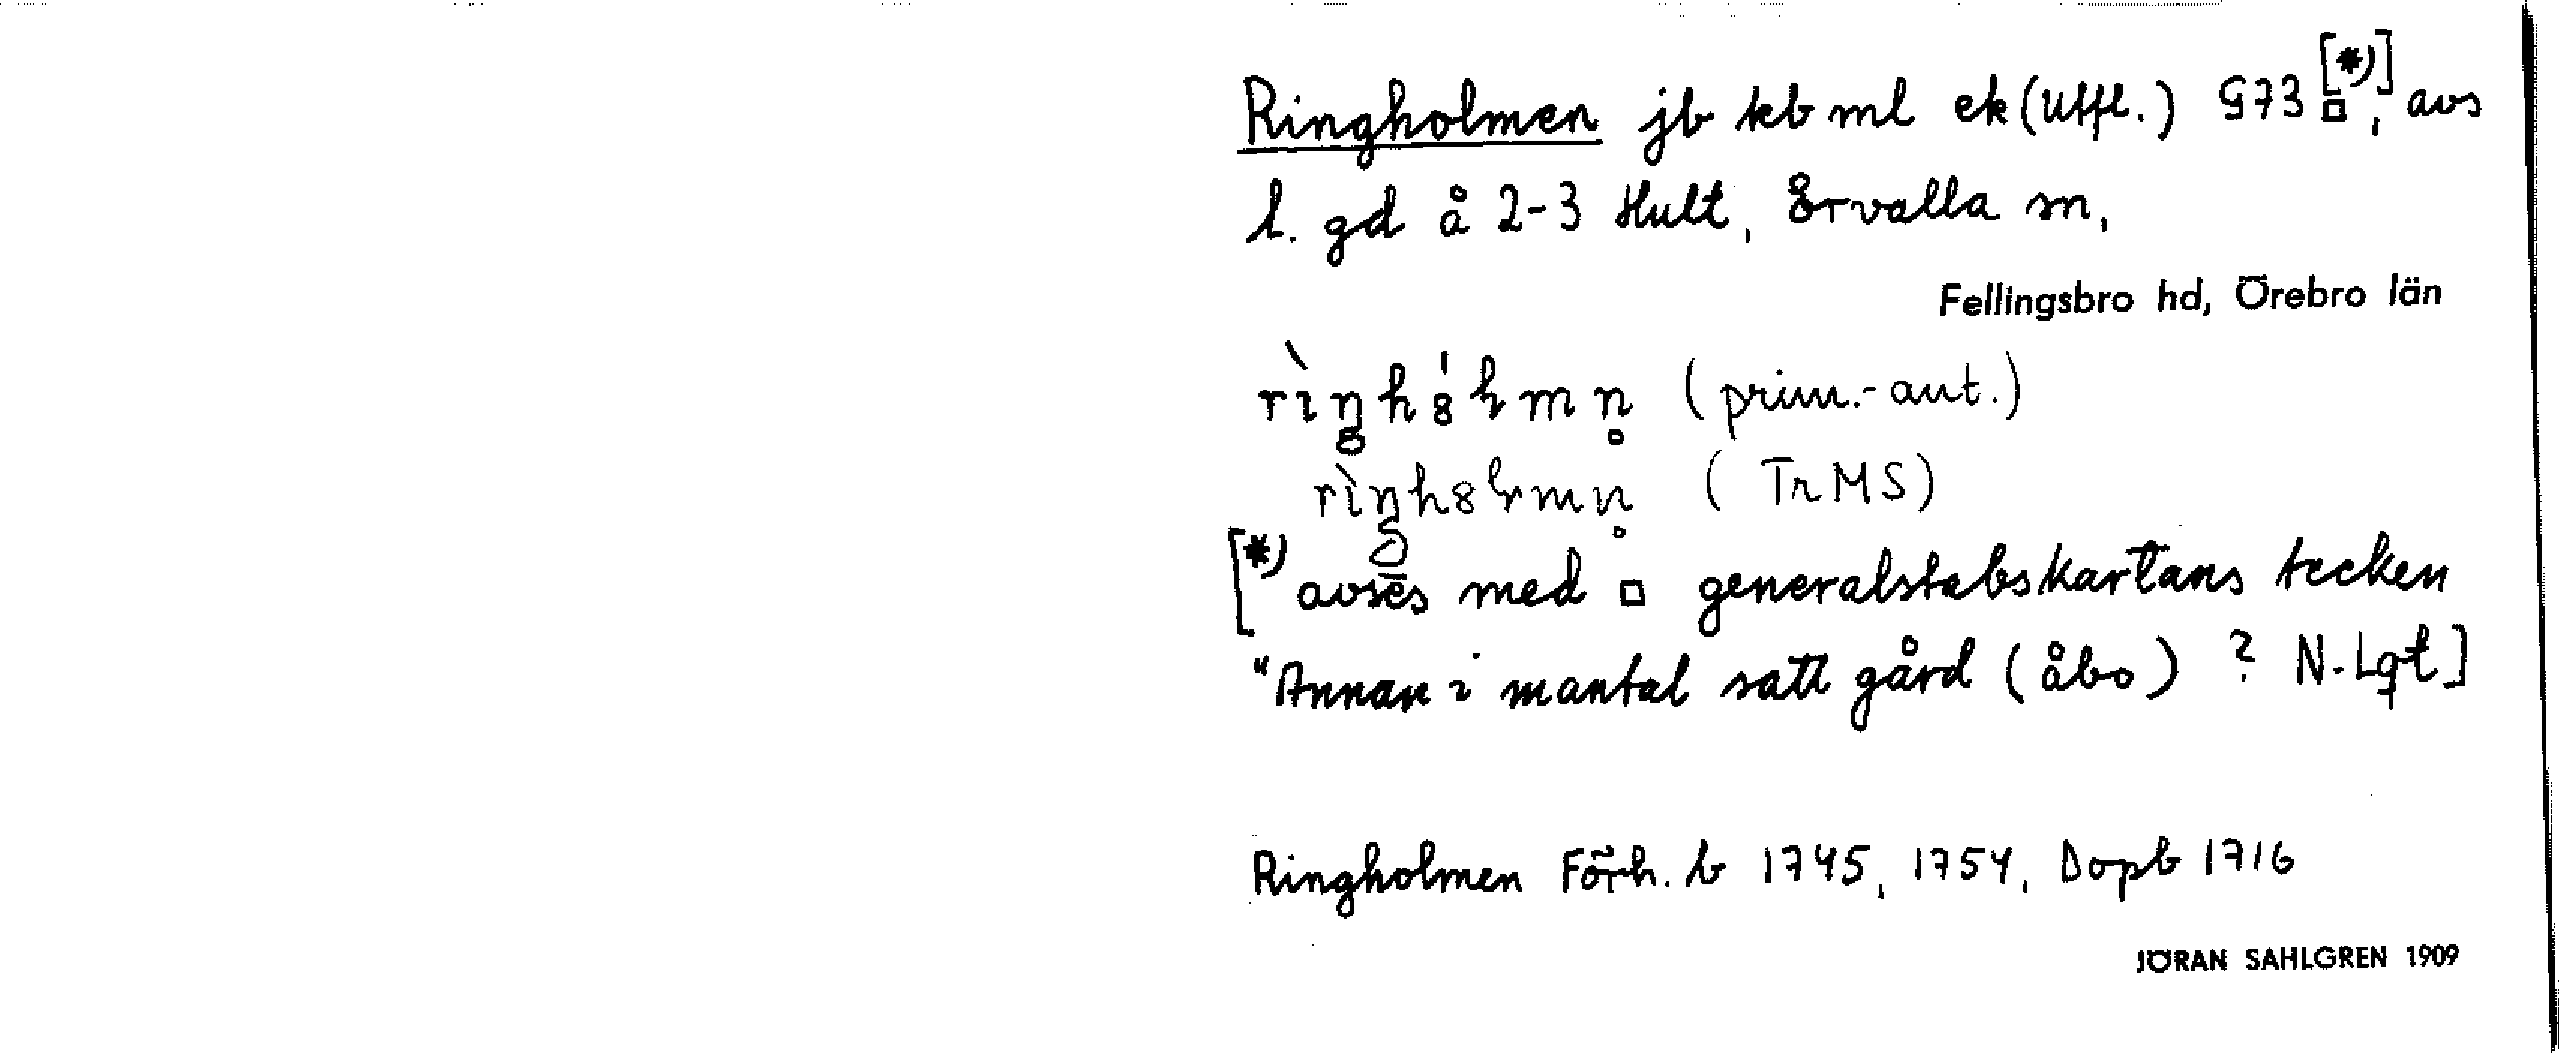 Ringholmen jb kb ml ek (Utfl.) G73 □ [*)], avs
l. gd å 2-3 Hult, Ervalla sn,
Fellingsbro hd, Örebro län
(prim.-aut.)
(TrMS)
[*) avses med □ generalstabskartans tecken
"Annan i mantal satt gård (åbo) ? N-Lgt]
Ringholmen Förh. b 1745, 1754, Dopb 1716
JÖRAN SAHLGREN 1909